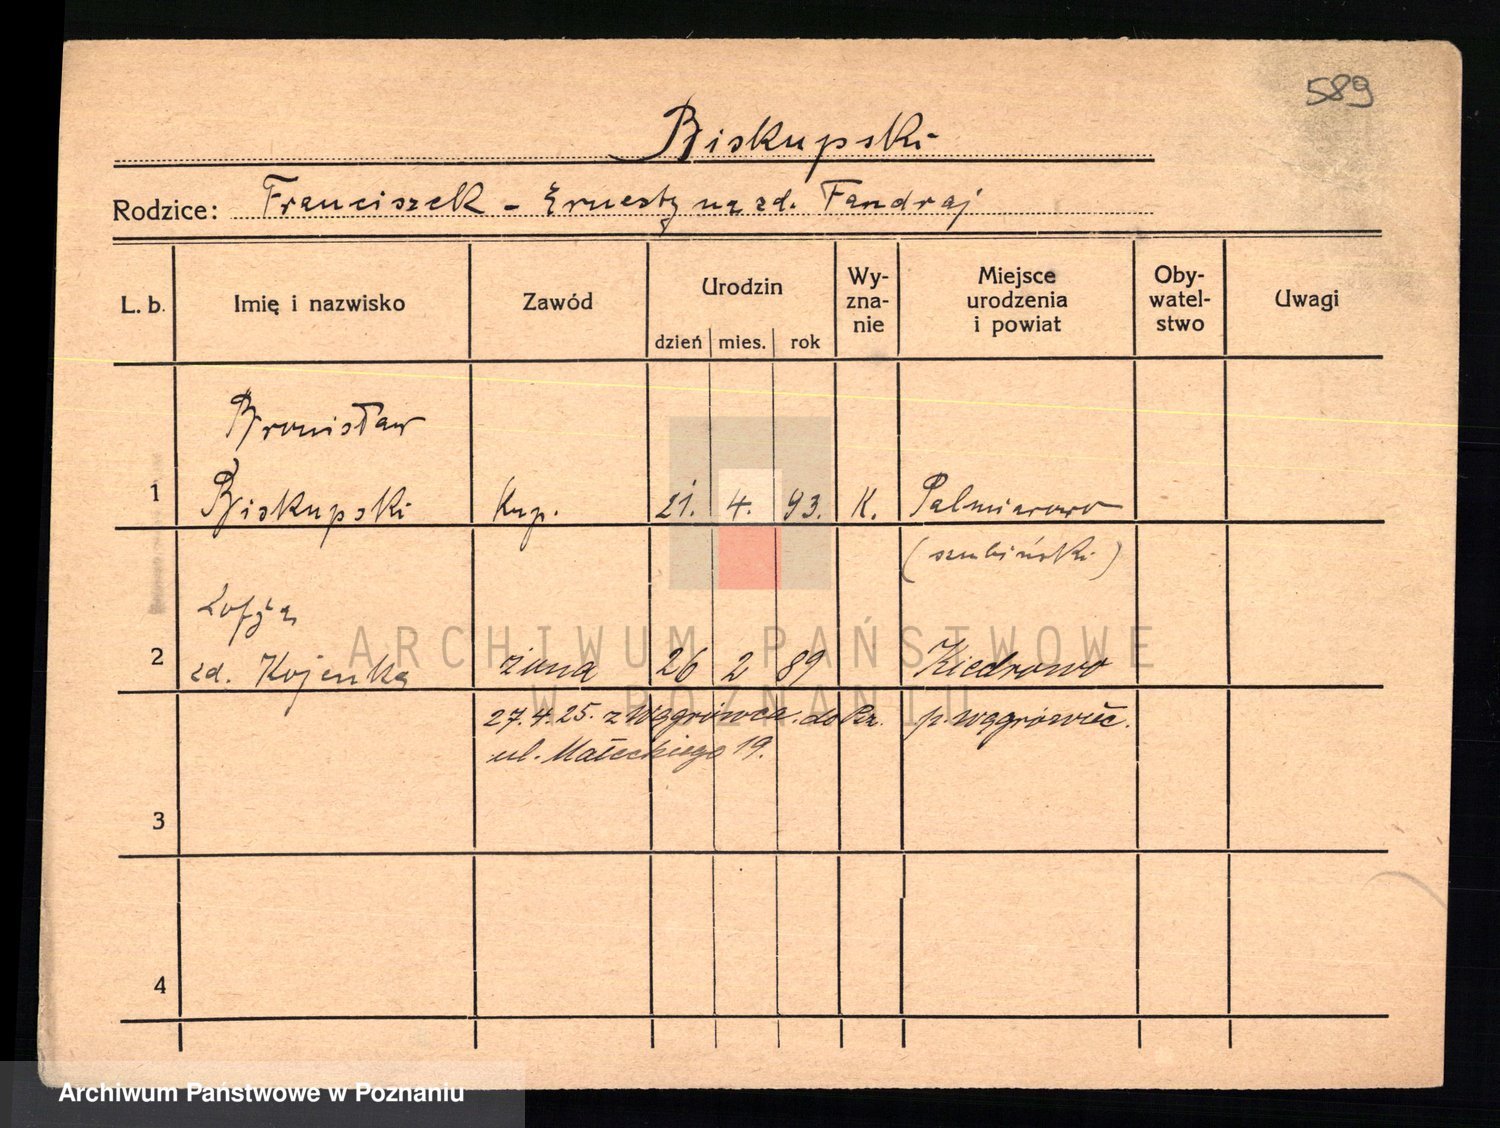 589
Biskupski
Rodzice: Franciszek - Ernestyna zd. Fandraj
L. b. Imię i nazwisko Zawód Urodzin dzień mies. rok Wy-zna-nie Miejsce urodzenia i powiat Oby-watel-stwo Uwagi
Bronisław
1 Biskupski Kup. 21. 4. 93. K. Palmierowo
(szubiński)
Zofja
2 zd. Kojenka żona 26 2 89 Kiedrowo
27.4.25. z Wągrówca do Pz. p. Wągrówiec.
ul. Małeckiego 19.
3
4
ARCHIWUM PAŃSTWOWE
W POZNANIU
Archiwum Państwowe w Poznaniu